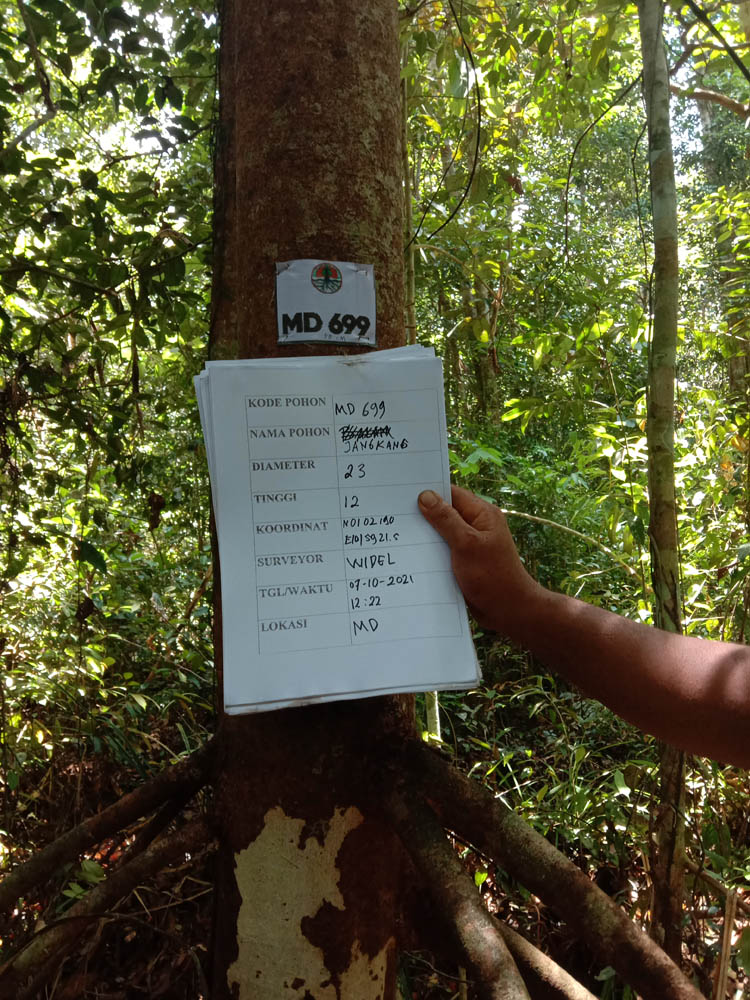 MD 699
KODE POHON MD 699
NAMA POHON JANGKANG
DIAMETER 23
TINGGI 12
KOORDINAT N01 02 190
E101 5921.5
SURVEYOR WIDEL
TGL/WAKTU 07-10-2021
12:22
LOKASI MD